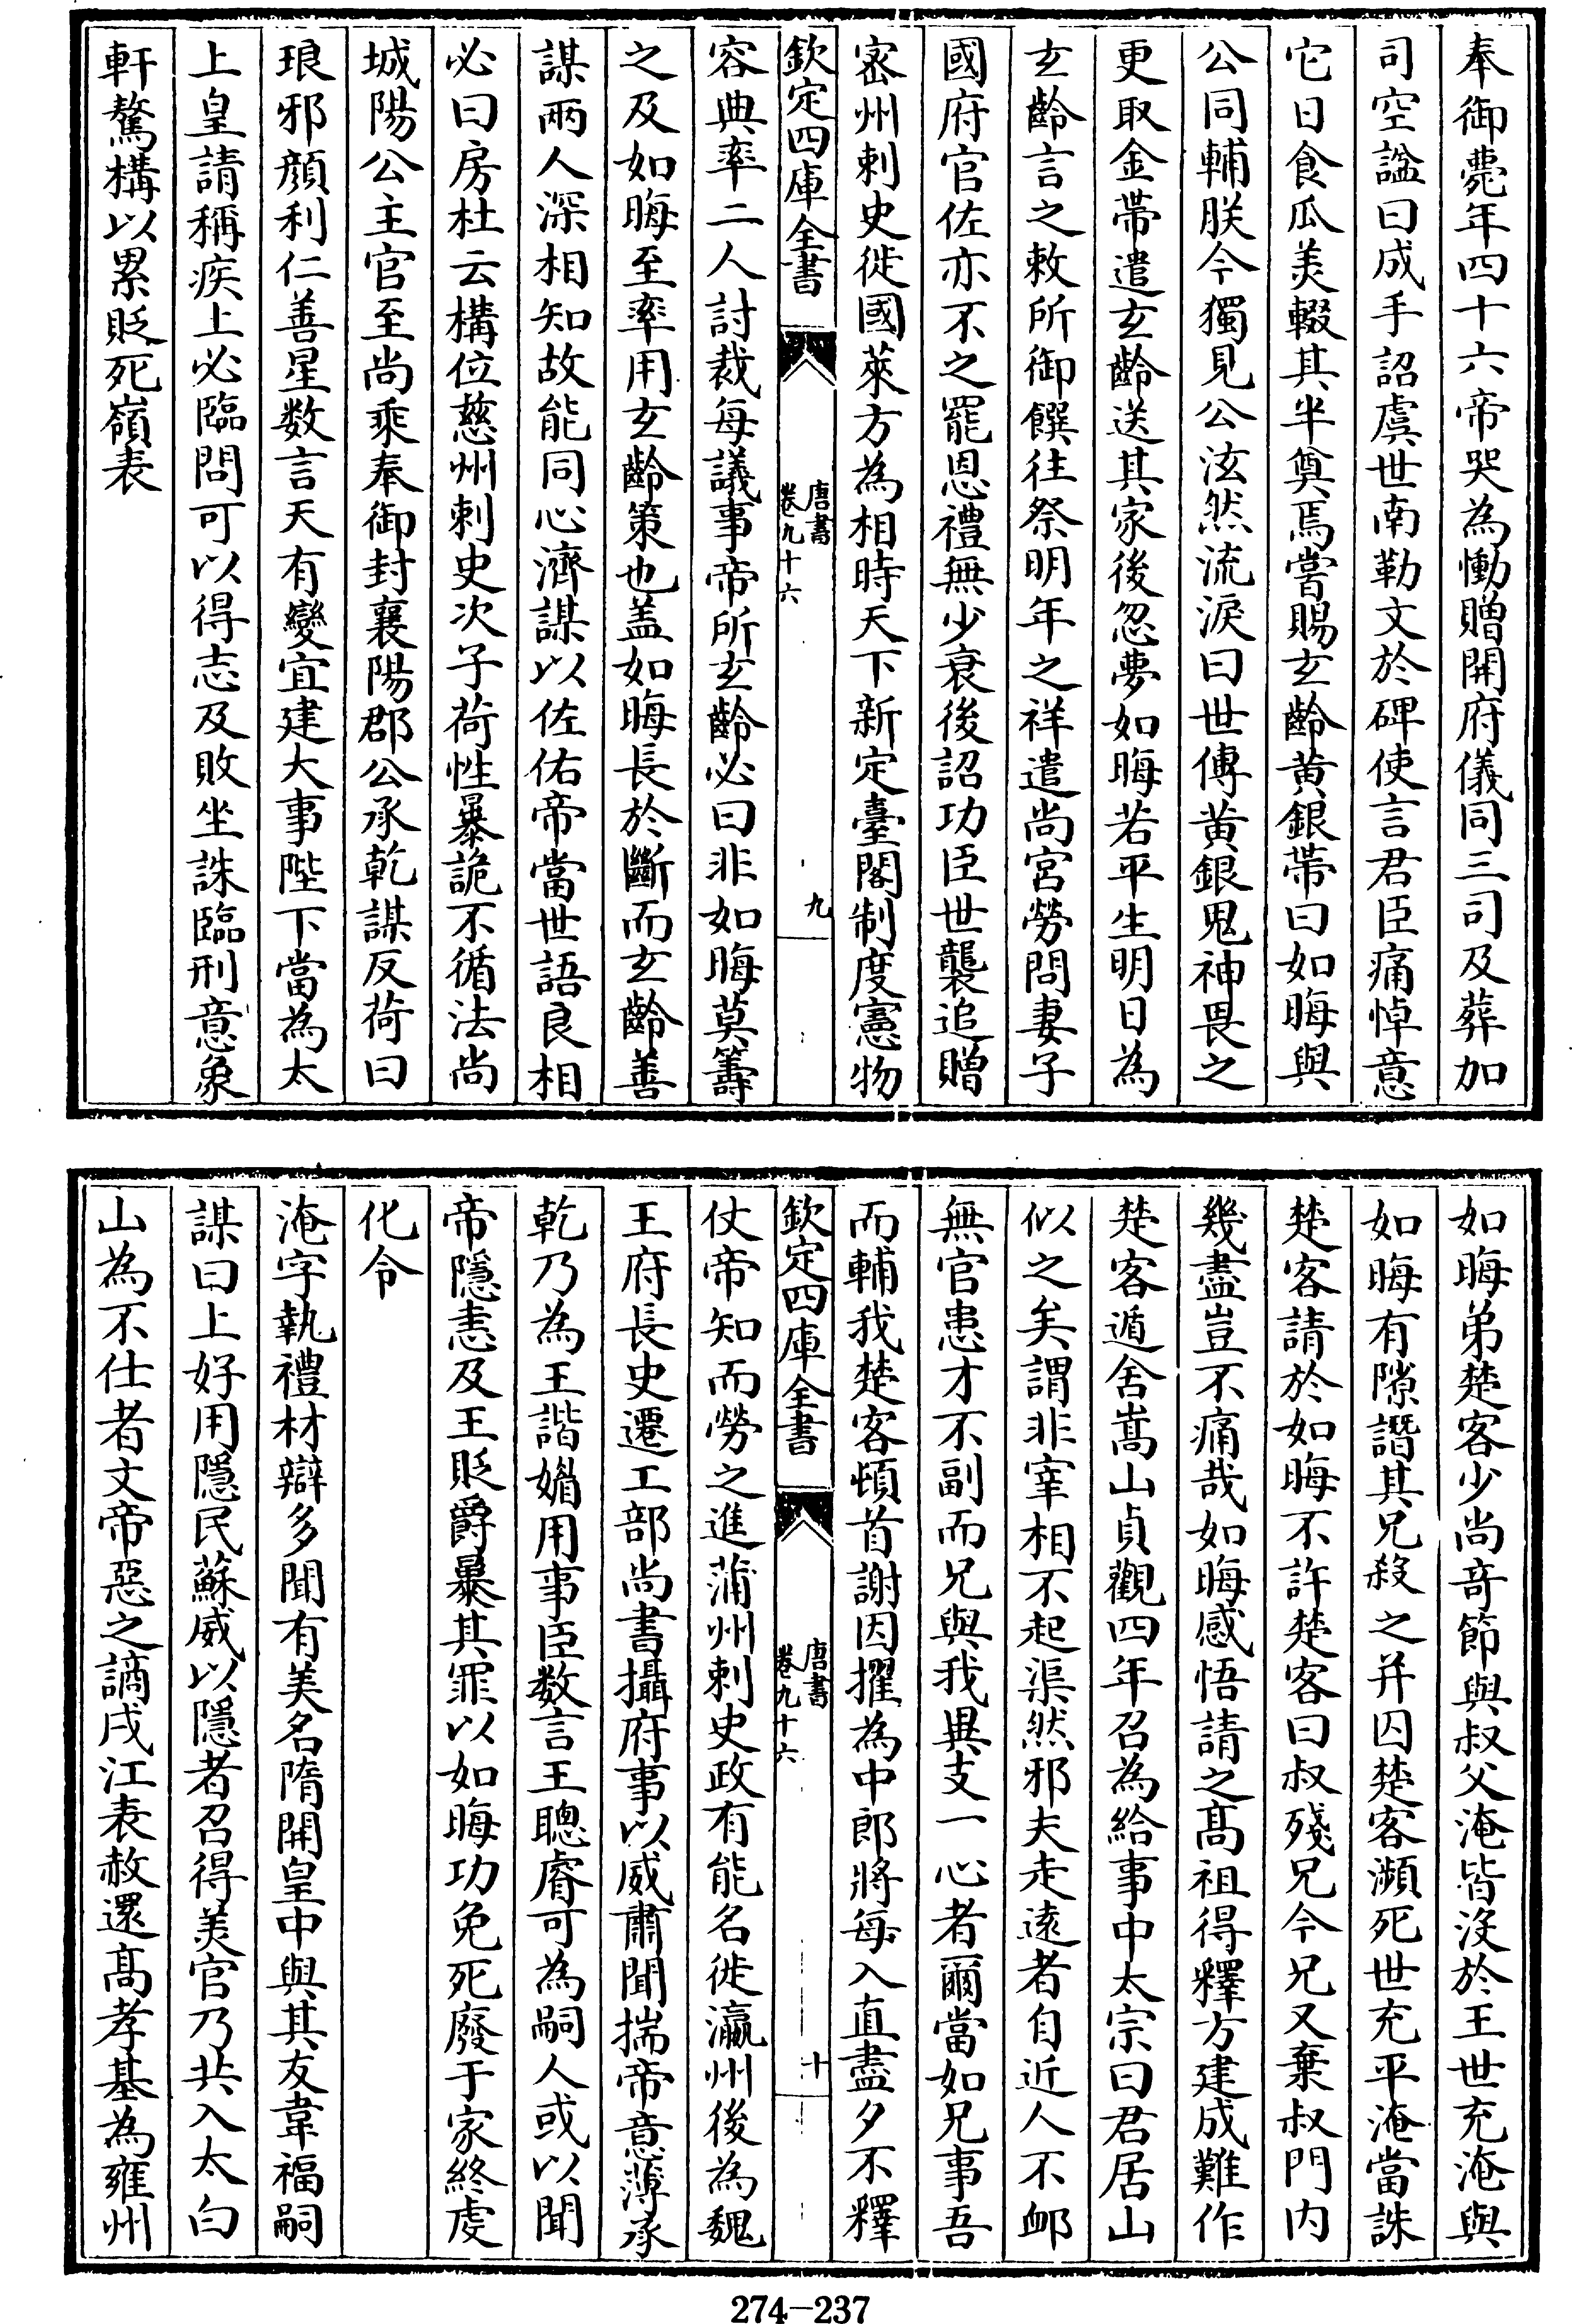 奉御薨年四十六帝哭為慟贈開府儀同三司及葬加
司空諡曰成手詔虞世南勒文於碑使言君臣痛悼意
它日食瓜美輟其半奠焉嘗賜玄齡黄銀帶曰如晦與
公同輔朕今獨見公泫然流淚曰世傳黄銀鬼神畏之
更取金帶遣玄齡送其家後忽夢如晦若平生明日為
玄齡言之敕所御饌往祭明年之祥遣尚宮勞問妻子
國府官佐亦不之罷恩禮無少衰後詔功臣世襲追贈
密州刺史徙國萊方為相時天下新定臺閣制度憲物
欽定四庫全書
唐書
卷九十六
九
容典率二人討裁每議事帝所玄齡必曰非如晦莫籌
之及如晦至率用玄齡策也蓋如晦長於斷而玄齡善
謀兩人深相知故能同心濟謀以佐佑帝當世語良相
必曰房杜云構位慈州刺史次子荷性暴詭不循法尚
城陽公主官至尚乘奉御封襄陽郡公承乾謀反荷曰
琅邪顏利仁善星数言天有變宜建大事陛下當為太
上皇請稱疾上必臨問可以得志及敗坐誅臨刑意象
軒驁構以累貶死嶺表
如晦弟楚客少尚奇節與叔父淹皆沒於王世充淹與
如晦有隙譖其兄殺之并囚楚客瀕死世充平淹當誅
楚客請於如晦不許楚客曰叔殘兄今兄又棄叔門内
幾盡豈不痛哉如晦感悟請之髙祖得釋方建成難作
楚客遁舍嵩山貞觀四年召為給事中太宗曰君居山
似之矣謂非宰相不起渠然邪夫走逺者自近人不卹
無官患才不副而兄與我異支一心者爾當如兄事吾
而輔我楚客頓首謝因擢為中郎將每入直盡夕不釋
欽定四庫全書
唐書
卷九十六
十
仗帝知而勞之進蒲州刺史政有能名徙瀛州後為魏
王府長史遷工部尚書攝府事以威肅聞揣帝意薄承
乾乃為王諧媚用事臣数言王聰睿可為嗣人或以聞
帝隱恚及王貶爵暴其罪以如晦功免死廢于家終虔
化令
淹字執禮材辯多聞有美名隋開皇中與其友韋福嗣
謀曰上好用隱民蘇威以隱者召得美官乃共入太白
山為不仕者文帝惡之謫戍江表赦還髙孝基為雍州
274—237